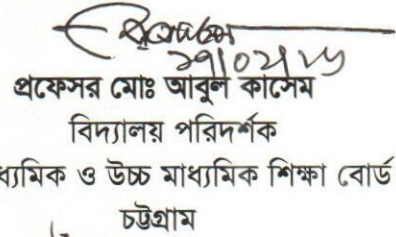 প্রফেসর মোঃ আবুল কাসেম
বিদ্যালয় পরিদর্শক
ধ্যমিক ও উচ্চ মাধ্যমিক শিক্ষা বোর্ড
চট্টগ্রাম